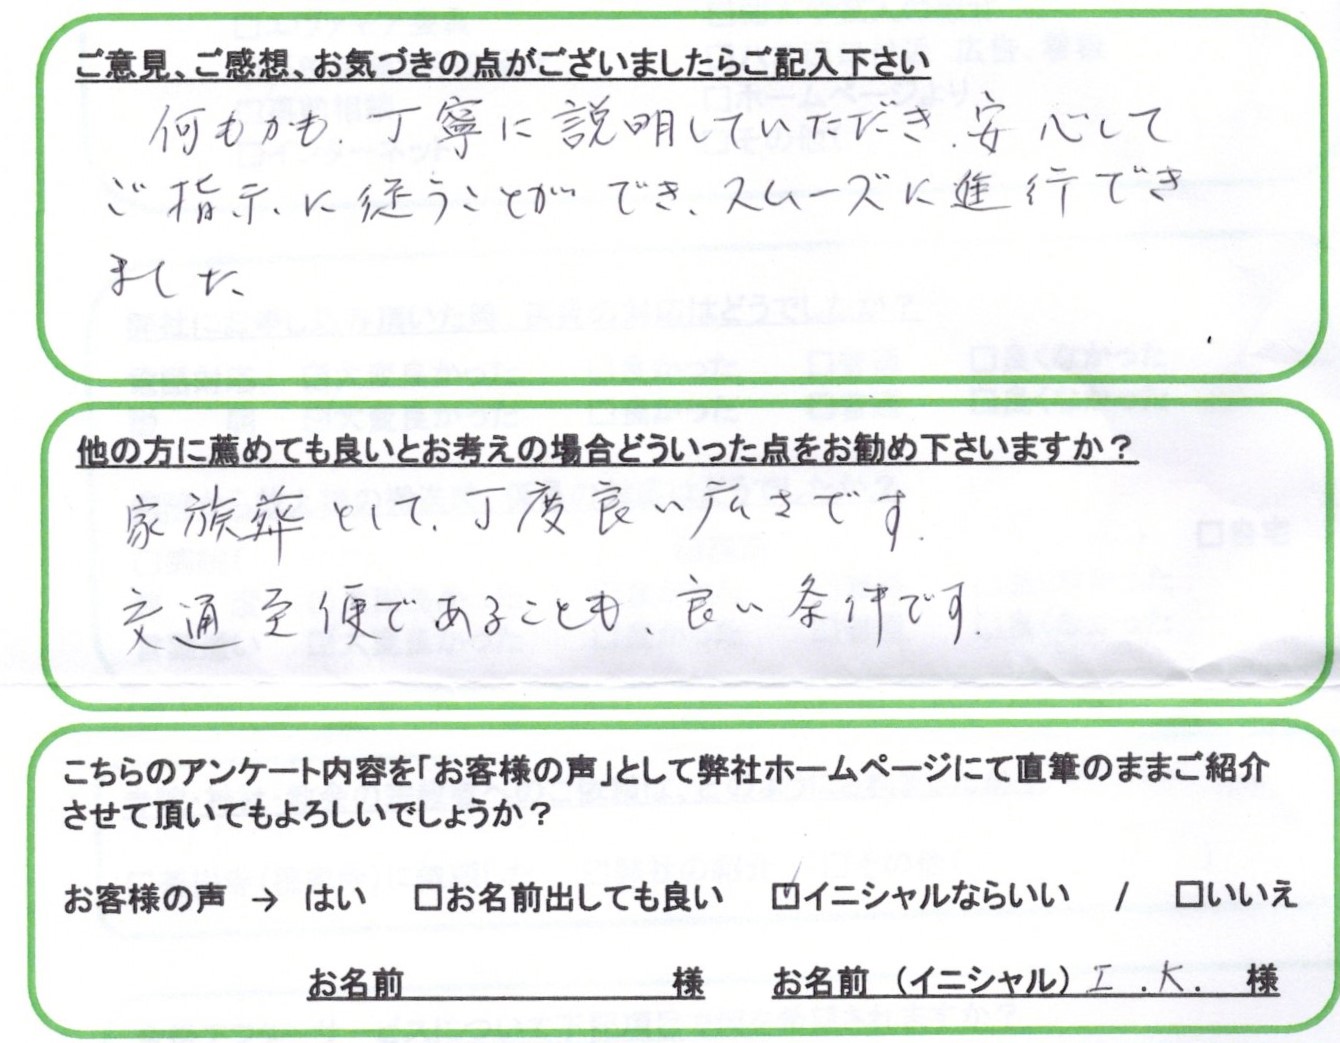 ご意見、ご感想、お気づきの点がございましたらご記入下さい
何もかも、丁寧に説明していただき、安心して
ご指示に従うことができ、スムーズに進行でき
ました。
他の方に薦めても良いとお考えの場合どういった点をお勧め下さいますか？
家族葬として、丁度良い広さです。
交通至便であることも、良い条件です。
こちらのアンケート内容を「お客様の声」として弊社ホームページにて直筆のままご紹介
させて頂いてもよろしいでしょうか？
お客様の声 → はい □お名前出しても良い ☑イニシャルならいい / □いいえ
お名前 様 お名前（イニシャル） I.K. 様